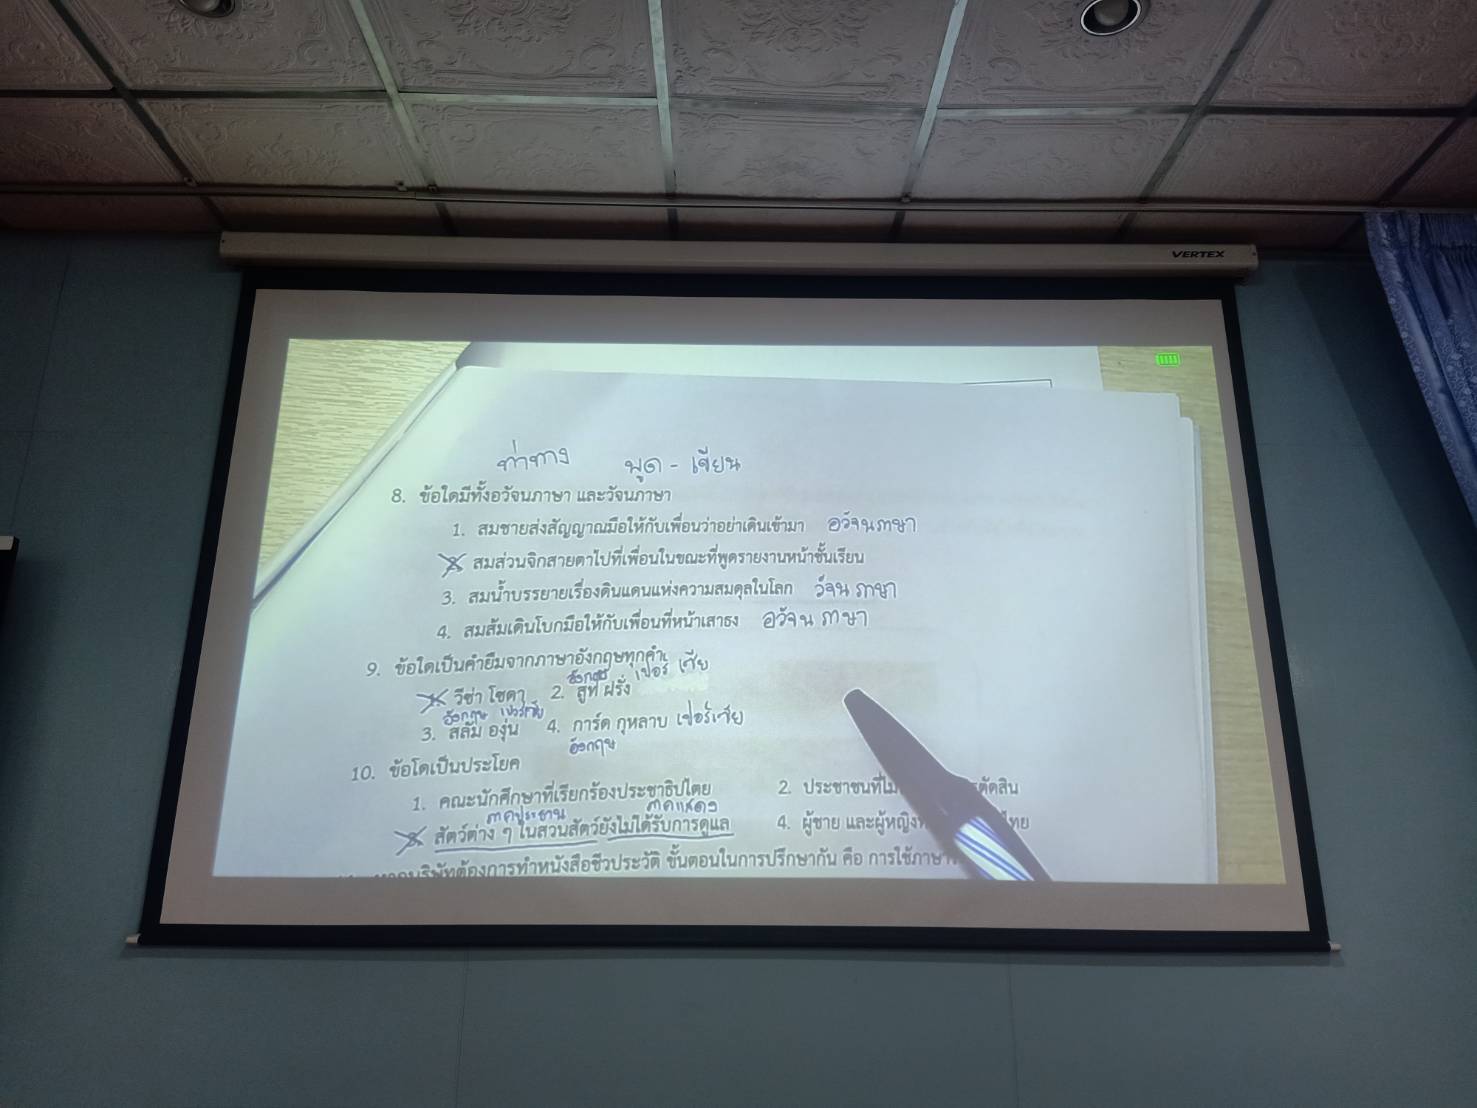 VERTEX
ท่าทาง พูด - เขียน
8. ข้อใดมีทั้งอวัจนภาษา และวัจนภาษา
1. สมชายส่งสัญญาณมือให้กับเพื่อนว่าอย่าเดินเข้ามา อวัจนภาษา
สมส่วนจิกสายตาไปที่เพื่อนในขณะที่พูดรายงานหน้าชั้นเรียน
3. สมน้ำบรรยายเรื่องดินแดนแห่งความสมดุลในโลก วัจน ภาษา
4. สมส้มเดินโบกมือให้กับเพื่อนที่หน้าเสาธง อวัจน ภาษา
9. ข้อใดเป็นคำยืมจากภาษาอังกฤษทุกคำ
อังกฤษ เปอร์เซีย
วีซ่า โซดา 2. สูท ฝรั่ง
อังกฤษ เปอร์เซีย
3. สลัม องุ่น 4. การ์ด กุหลาบ เปอร์เซีย
อังกฤษ
10. ข้อใดเป็นประโยค
1. คณะนักศึกษาที่เรียกร้องประชาธิปไตย 2. ประชาชนที่ไม่ ตัดสิน
ภาคประธาน ภาคแสดง
สัตว์ต่าง ๆ ในสวนสัตว์ยังไม่ได้รับการดูแล 4. ผู้ชาย และผู้หญิง ไทย
บริษัทต้องการทำหนังสือชีวประวัติ ขั้นตอนในการปรึกษากัน คือ การใช้ภาษา